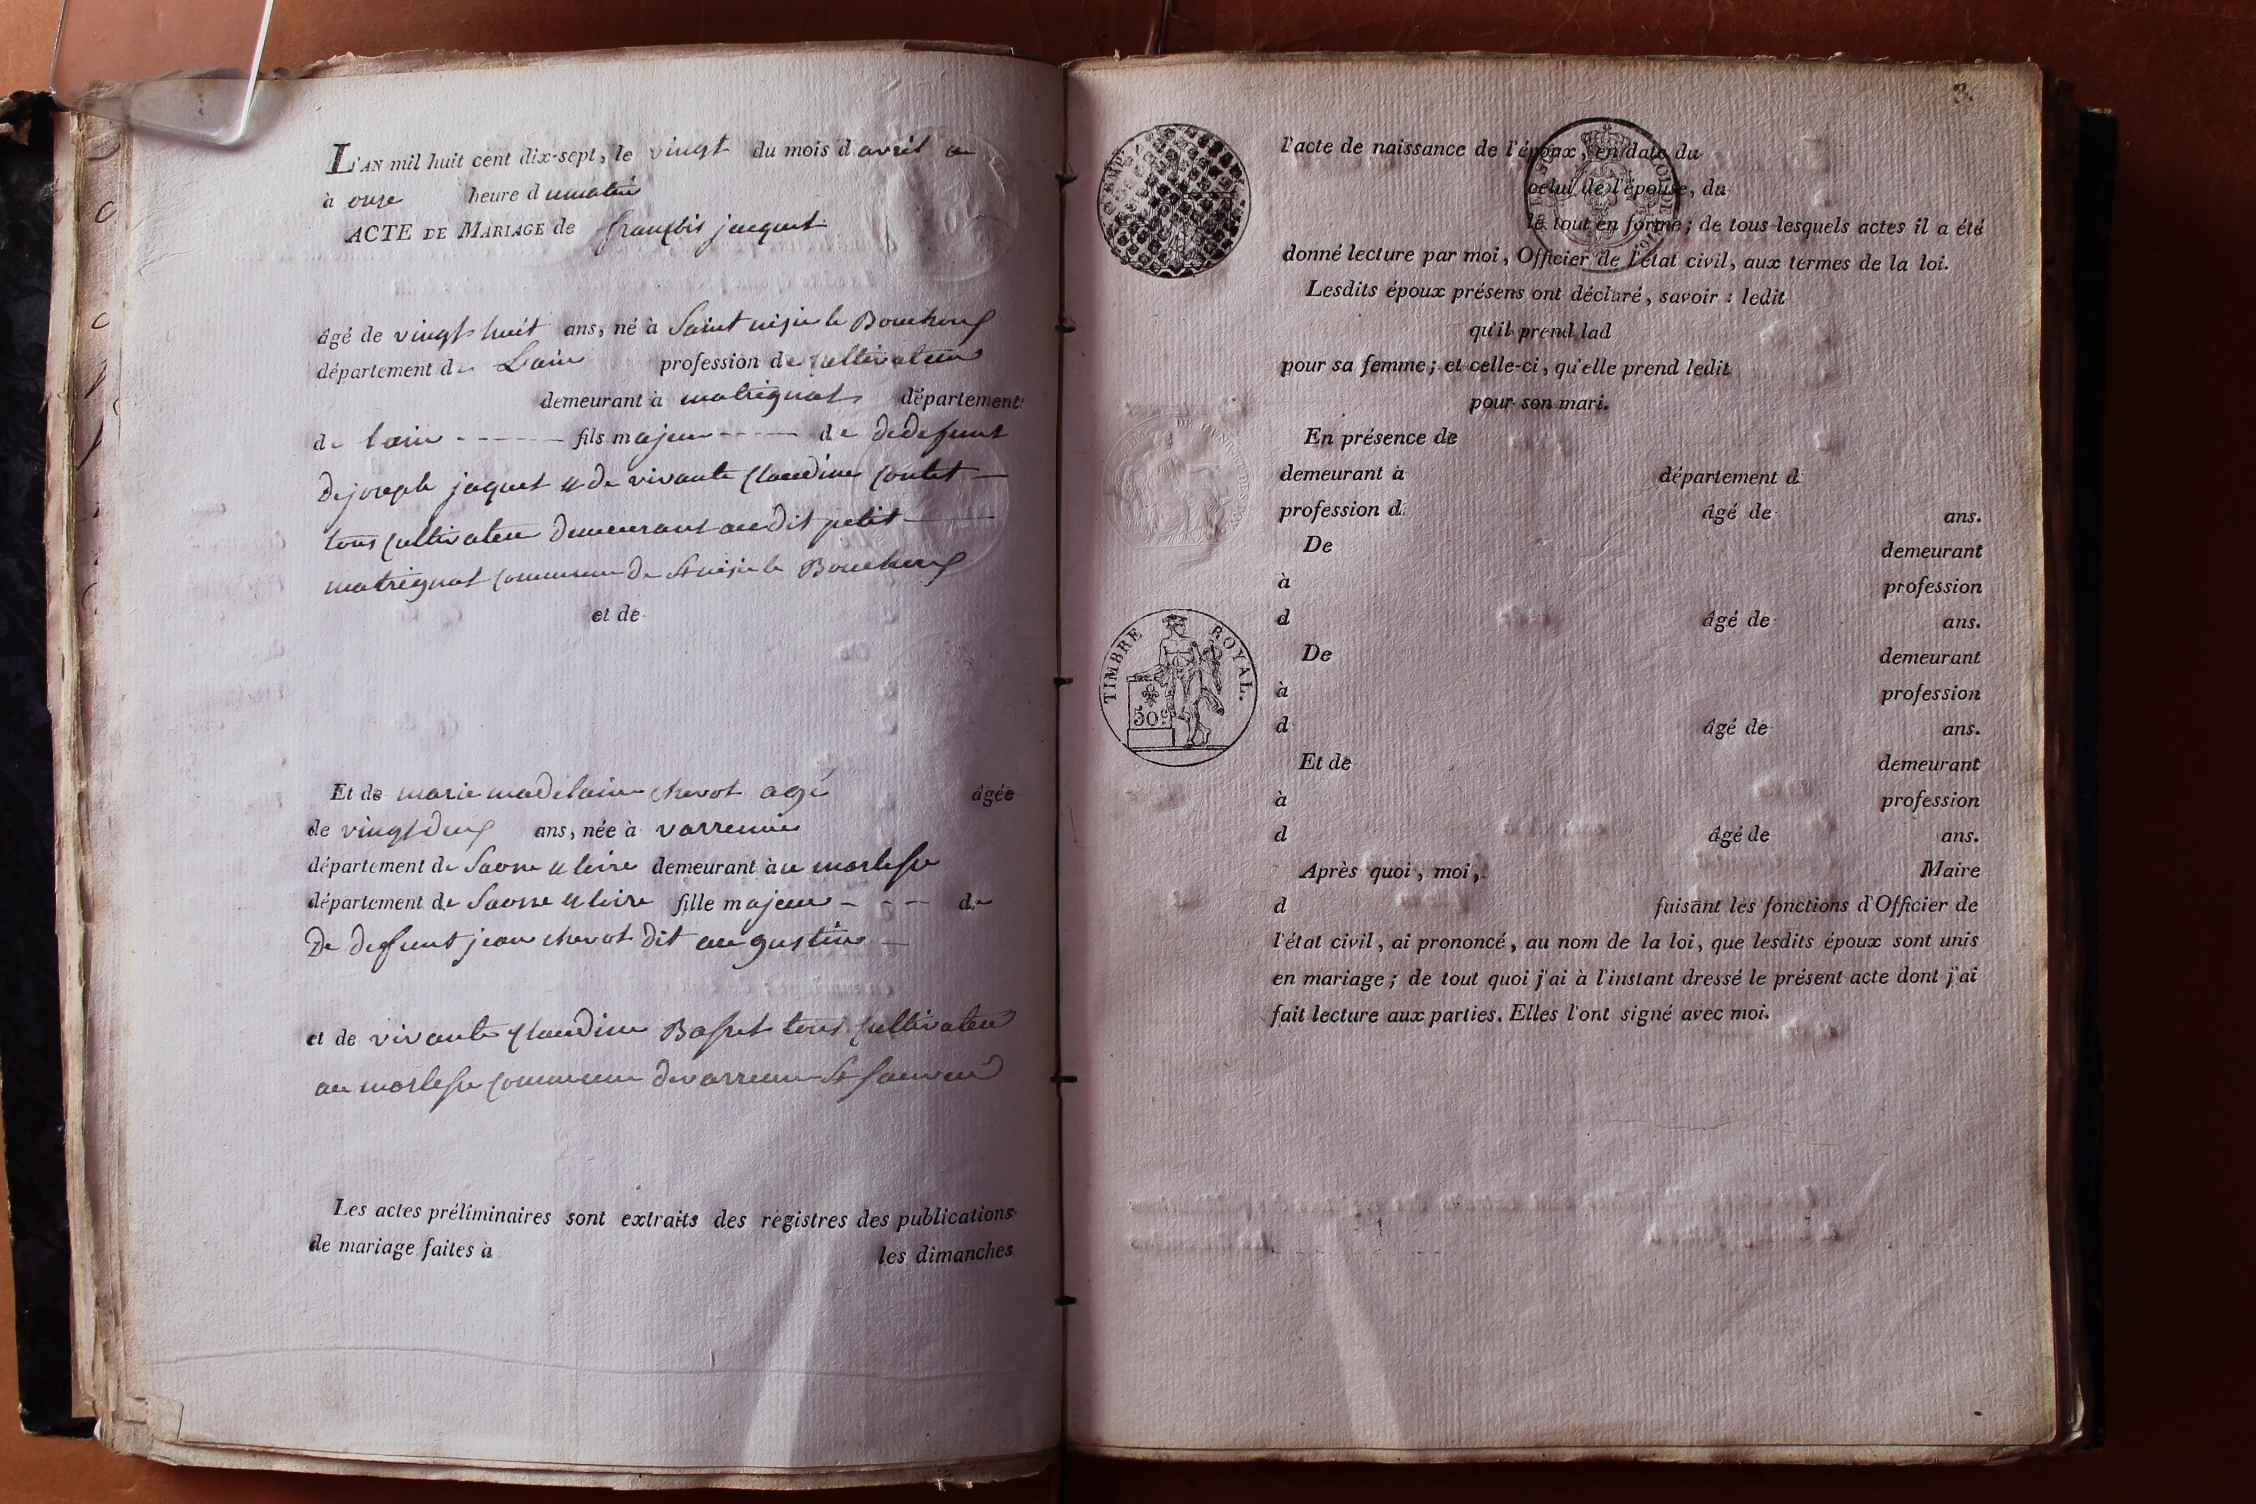 L'AN mil huit cent dix-sept, le vingt du mois d avril a
à onze heure d umatin
ACTE DE MARIAGE de françois jacquet
âgé de vingt huit ans, né à Saint nisie le Bouchoux
département de Lain profession de cultivateur
demeurant à matrignat département
de lain fils majeur de dedefunt
De joseph jaquet et de vivante Claudine Contet
tous cultivateur Demeurant audit petit
matrignat Commune de St nisie le Bouchoux
et de
Et de marie madelaine chevot agé âgée
de vingt deux ans, née à varrenne
département de Saone et loire demeurant à au
département de Saone et loire fille majeur de
De defunt jean chevot dit augustin
et de vivante Claudine Basset tous Cultivateur
au Commune de varrenne St Sauveur
Les actes préliminaires sont extraits des registres des publications
de mariage faites à les dimanches
3.
l'acte de naissance de l'époux, en date du
celui de l'épouse, du
le tout en forme; de tous lesquels actes il a été
donné lecture par moi, Officier de l'état civil, aux termes de la loi.
Lesdits époux présens ont déclaré, savoir : ledit
qu'il prend lad
pour sa femme; et celle-ci, qu'elle prend ledit
pour son mari.
En présence de
demeurant à département d
profession d âgé de ans.
De demeurant
à profession
d âgé de ans.
De demeurant
à profession
d âgé de ans.
Et de demeurant
à profession
d âgé de ans.
Après quoi, moi, Maire
d faisant les fonctions d'Officier de
l'état civil, ai prononcé, au nom de la loi, que lesdits époux sont unis
en mariage; de tout quoi j'ai à l'instant dressé le présent acte dont j'ai
fait lecture aux parties. Elles l'ont signé avec moi.
TIMBRE ROYAL.
50c